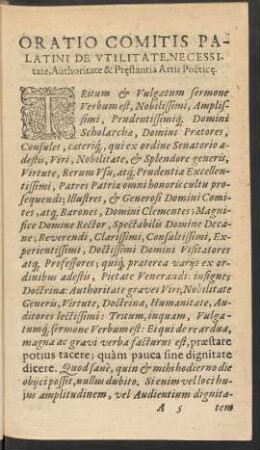 ORATIO COMITIS PA-
LATINI DE VTILITATE, NECESSI-
tate, Authoritate & Pręstantia Artis Poëticę.
TRitum & Vulgatum sermone
Verbum est, Nobilissimi, Amplis-
simi, Prudentissimiq́; Domini
Scholarchæ, Domini Prætores,
Consules, cateriq́;, qui ex ordine Senatorio a-
destis, Viri, Nobilitate, & Splendore generis,
Virtute, Rerum Vsu, atq́; Prudentia Excellen-
tissimi, Patres Patriæ omni honoris cultu pro-
sequendi; Illustres, & Generosi Domini Comi-
tes, atq́; Barones, Domini Clementes; Magni-
fice Domine Rector, Spectabilis Domine Deca-
ne; Reverendi, Clarissimi, Consultissimi, Ex-
perientissimi, Doctissimi Domini Visitatores
atq́; Professores; quiq́; præterea varijs ex or-
dinibus adestis, Pietate Venerandi: insignes
Doctrinæ Authoritate graves Viri, Nobilitate
Generis, Virtute, Doctrina, Humanitate, Au-
ditores lectissimi: Tritum, inquam, Vulga-
tumq́; sermone Verbum est: Ei qui de re ardua,
magna ac gravi verba facturus est, præstare
potius tacere; quàm pauca sine dignitate
dicere. Quod sanè, quin & mihi hodierno die
obijci possit, nullus dubito. Si enim vel loci hu-
jus amplitudinem, vel Audientium dignita-
A 5 tem